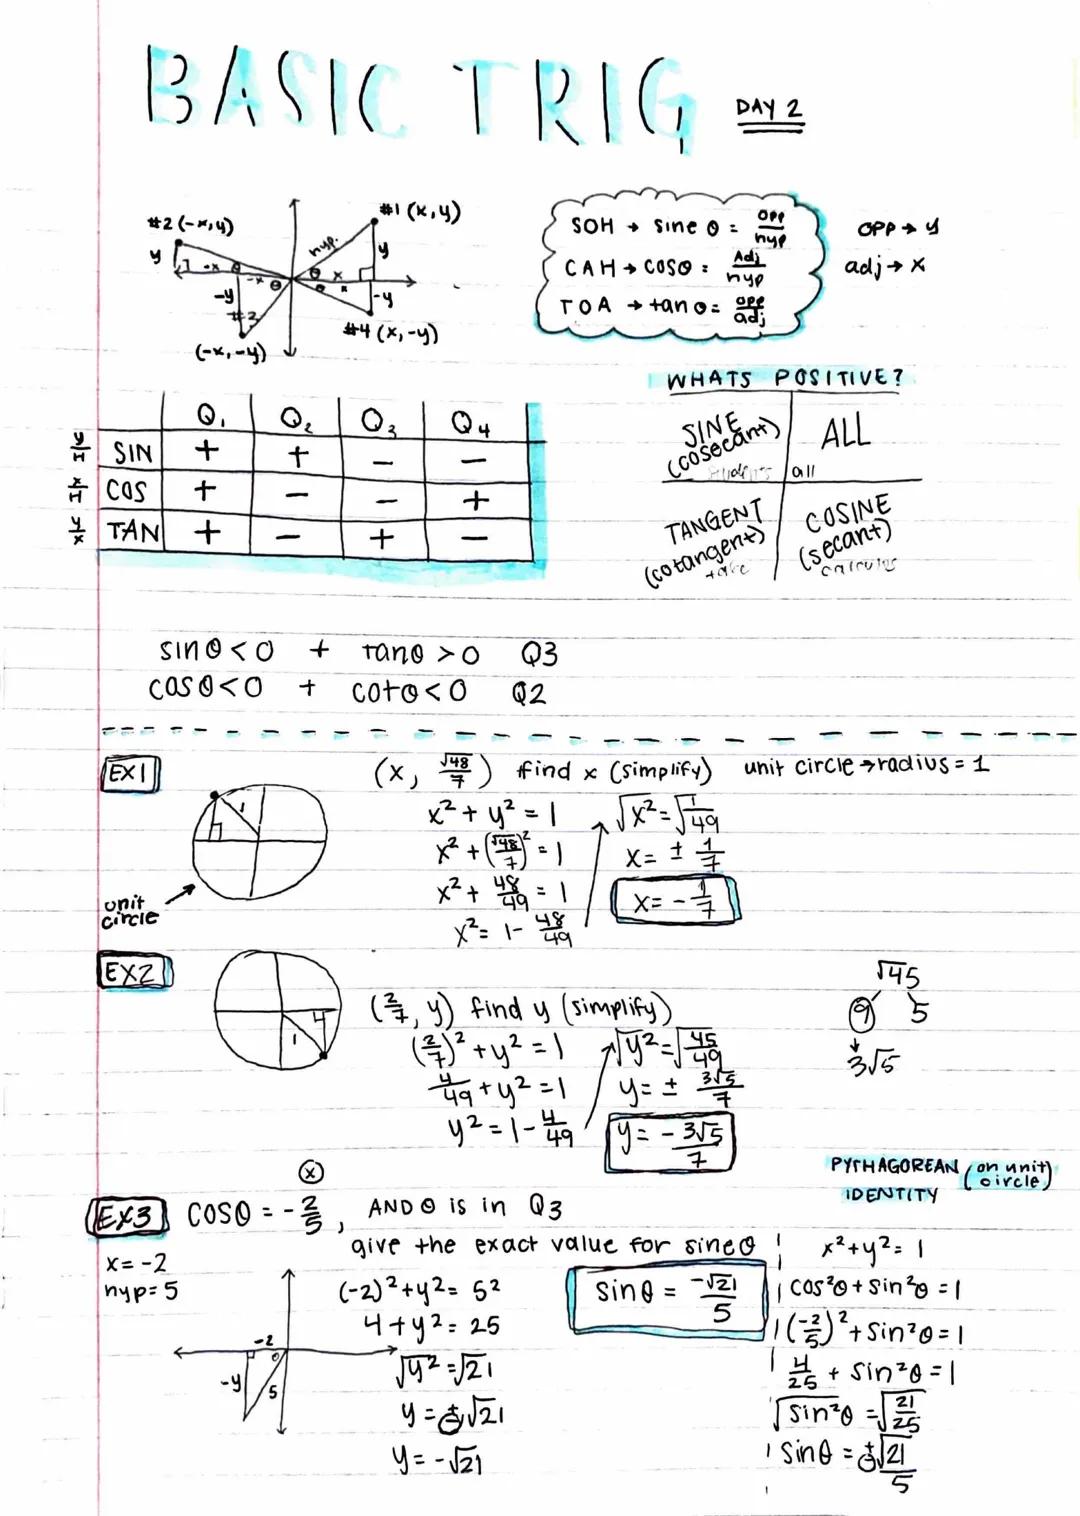 BASIC TRIG DAY 2
#2 (-x, y)
#1 (x, y)
hyp.
y
y
-x θ
θ x
-x θ
θ x
-y
-y
#2
#4 (x, -y)
(-x, -y)
SOH → sine θ = opp/hyp
CAH → COSθ = Adj/hyp
TOA → tan θ = opp/adj
OPP → y
adj → x
WHATS POSITIVE?
SINE (cosecant) students
ALL all
TANGENT (cotangent) take
COSINE (secant) calculus
Q1 Q2 Q3 Q4
y/H SIN + + - -
x/H COS + - - +
y/x TAN + - + -
sinθ < 0 + Tanθ > 0 Q3
cosθ < 0 + cotθ < 0 Q2
EX1
(x, √48/7) find x (simplify) unit circle → radius = 1
1
unit circle
x² + y² = 1
x² + (√48/7)² = 1
x² + 48/49 = 1
x² = 1 - 48/49
√x² = √1/49
x = ± 1/7
x = - 1/7
EX2
1
(2/7, y) find y (simplify)
(2/7)² + y² = 1
4/49 + y² = 1
y² = 1 - 4/49
√y² = √45/49
y = ± 3√5/7
y = - 3√5/7
√45
9 5
3√5
EX3 COSθ = - 2/5, AND θ is in Q3
x
give the exact value for sineθ
x = -2
hyp = 5
-2
θ
-y
5
(-2)² + y² = 5²
4 + y² = 25
√y² = √21
y = ±√21
y = -√21
sinθ = -√21/5
PYTHAGOREAN IDENTITY (on unit circle)
x² + y² = 1
cos²θ + sin²θ = 1
(-2/5)² + sin²θ = 1
4/25 + sin²θ = 1
√sin²θ = √21/25
sinθ = ±√21/5